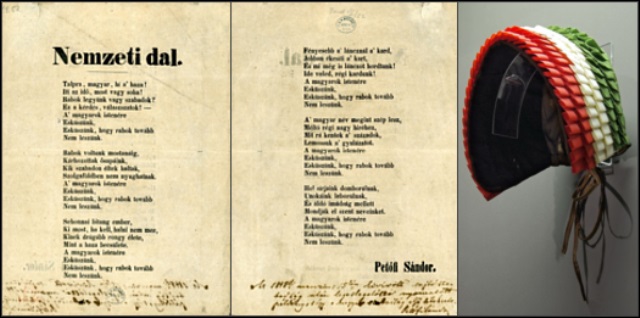 Nemzeti dal.
Talpra, magyar, hi a' haza!
Itt az idő, most vagy soha!
Rabok legyünk vagy szabadok?
Ez a' kérdés, válasszatok! —
A' magyarok istenére
Esküszünk,
Esküszünk, hogy rabok tovább
Nem leszünk.
Rabok voltunk mostanáig,
Kárhozottak ősapáink,
Kik szabadon éltek haltak,
Szolgaföldben nem nyughatnak.
A' magyarok istenére
Esküszünk,
Esküszünk, hogy rabok tovább
Nem leszünk.
Sehonnai bitang ember,
Ki most, ha kell, halni nem mer,
Kinek drágább rongy élete,
Mint a' haza becsülete.
A' magyarok istenére
Esküszünk,
Esküszünk, hogy rabok tovább
Nem leszünk.
Fényesebb a' láncznál a' kard,
Jobban ékesíti a' kart,
És mi még is lánczot hordtunk!
Ide veled, régi kardunk!
A' magyarok istenére
Esküszünk,
Esküszünk, hogy rabok tovább
Nem leszünk.
A' magyar név megint szép lesz,
Méltó régi nagy hiréhez,
Mit rá kentek a' századok,
Lemossuk a' gyalázatot.
A' magyarok istenére
Esküszünk,
Esküszünk, hogy rabok tovább
Nem leszünk.
Hol sirjaink domborulnak,
Unokáink leborulnak,
És áldó imádság mellett
Mondják el szent neveinket.
A' magyarok istenére
Esküszünk,
Esküszünk, hogy rabok tovább
Nem leszünk.
Petőfi Sándor.